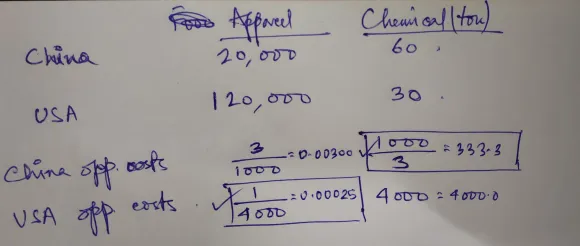 Apparel Chemical (ton)
China 20,000 60
USA 120,000 30
China opp. costs 3/1000 = 0.00300 1000/3 = 333.3
USA opp costs 1/4000 = 0.00025 4000 = 4000.0